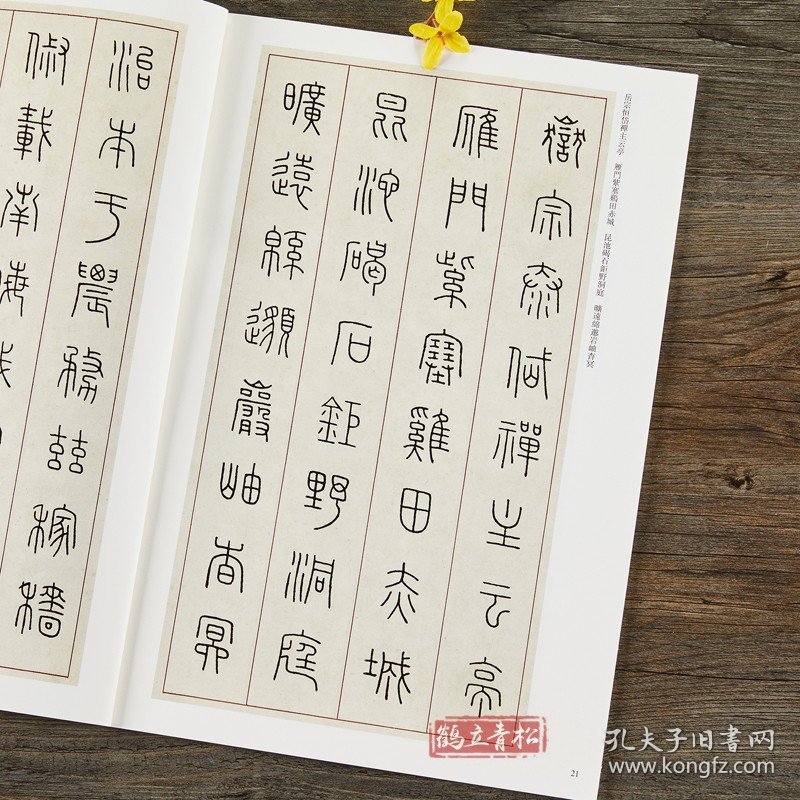 嶽宗恆岱禪主云亭
雁門紫塞雞田赤城
昆池碣石鉅野洞庭
曠遠緜邈巖岫杳冥
治本于農務茲稼穡
俶載南畝我
岳宗恒岱禪主云亭 雁門紫塞鷄田赤城 昆池碣石鉅野洞庭 曠遠綿邈岩岫杳冥
21
鹤立青松
孔夫子旧书网
www.kongfz.com